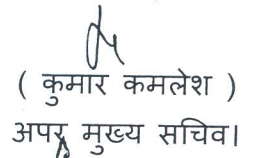 ( कुमार कमलेश )
अपर मुख्य सचिव।